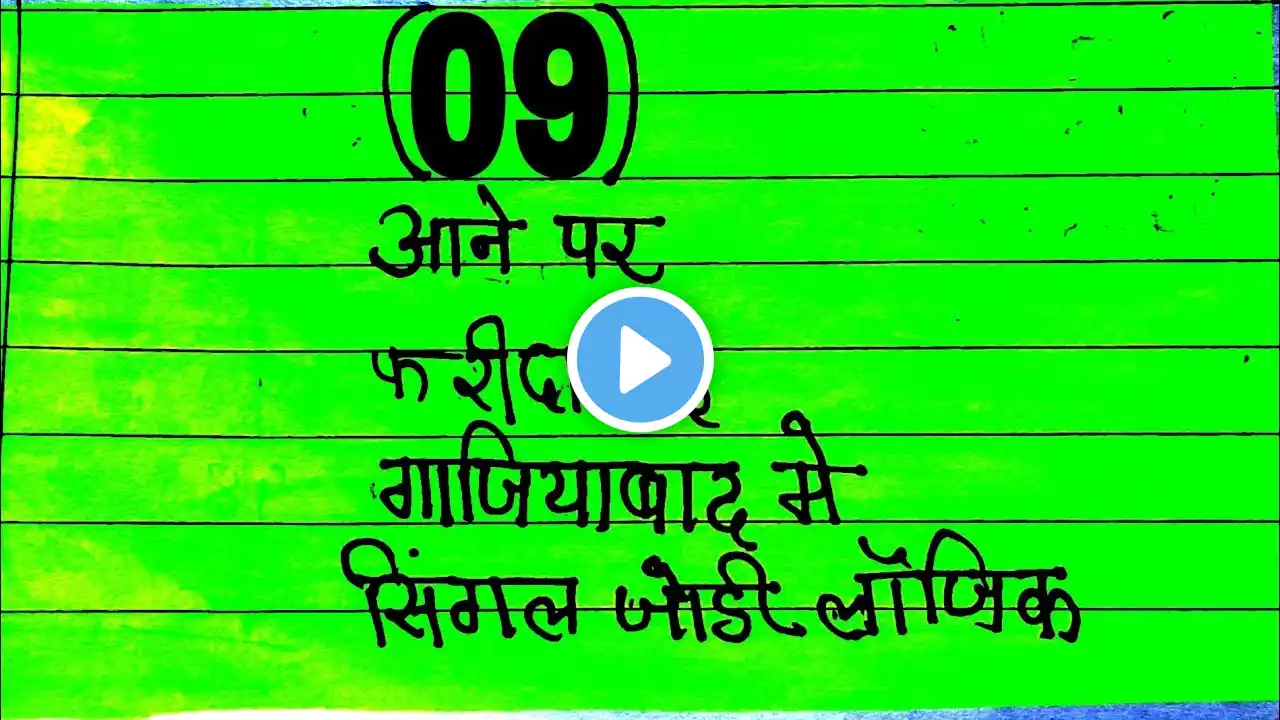 (09)
आने पर
गाजियाबाद मे
सिंगल जोडी लॉजिक